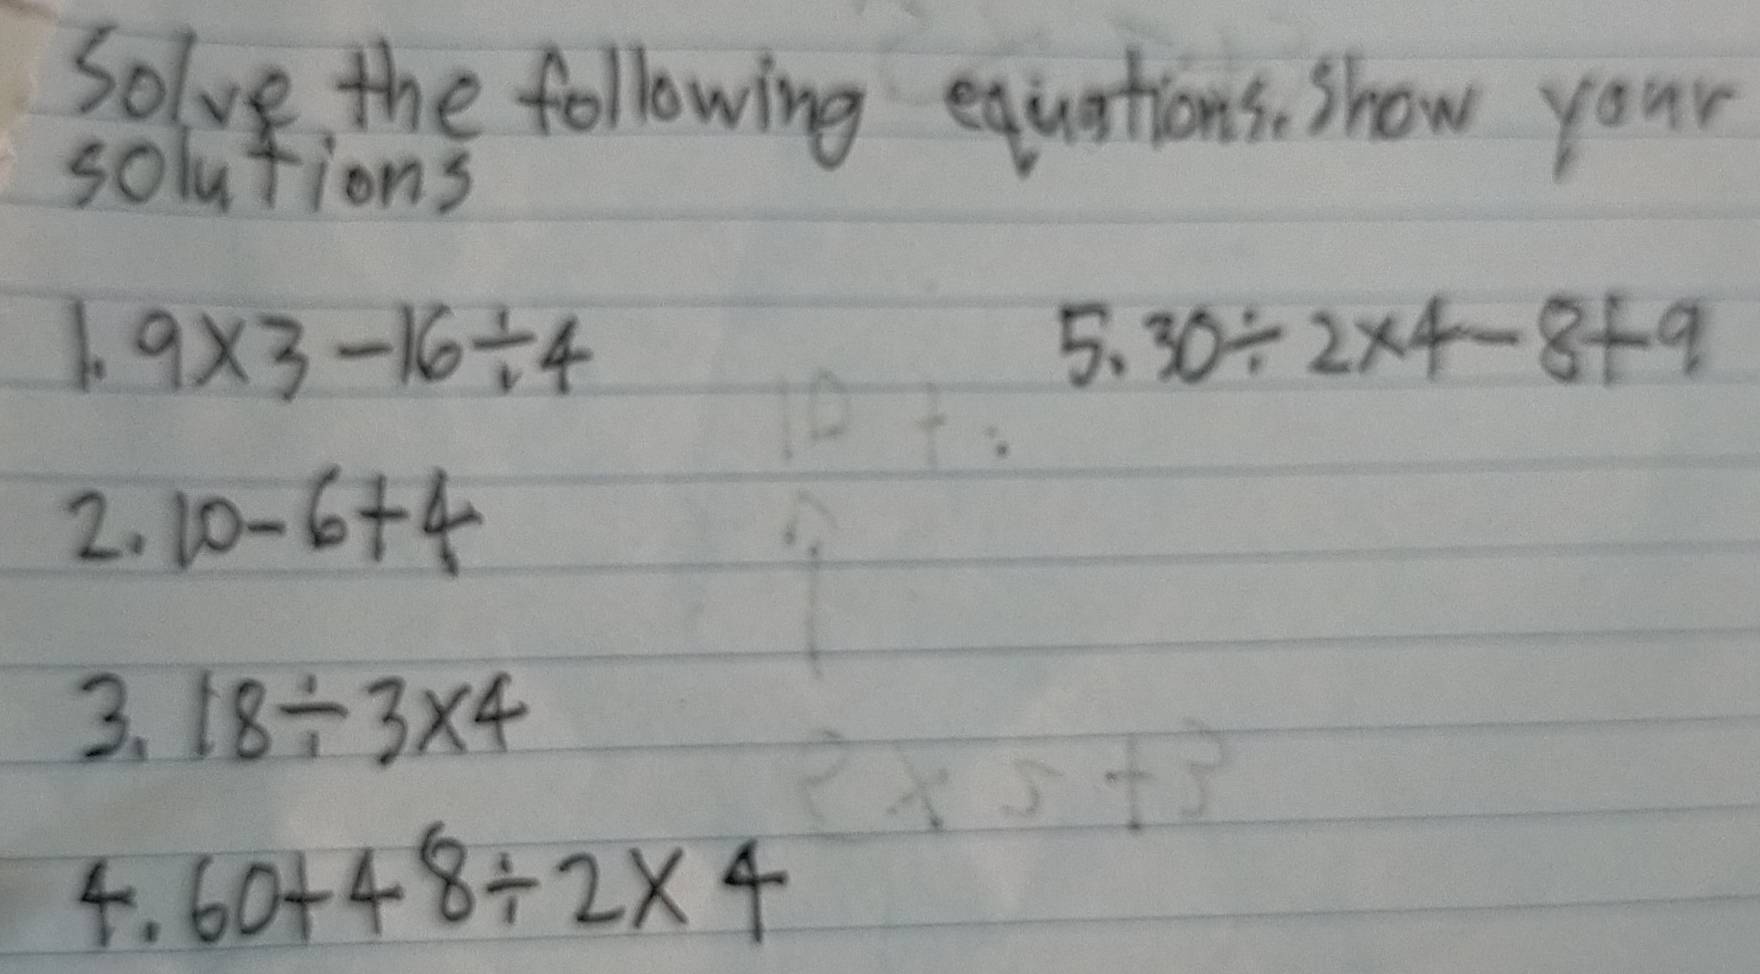 Solve the following equations. Show your
solutions
1. 9×3-16÷4
5. 30÷2×4-8+9
2. 10-6+4
3. 18÷3×4
4. 60+48÷2×4